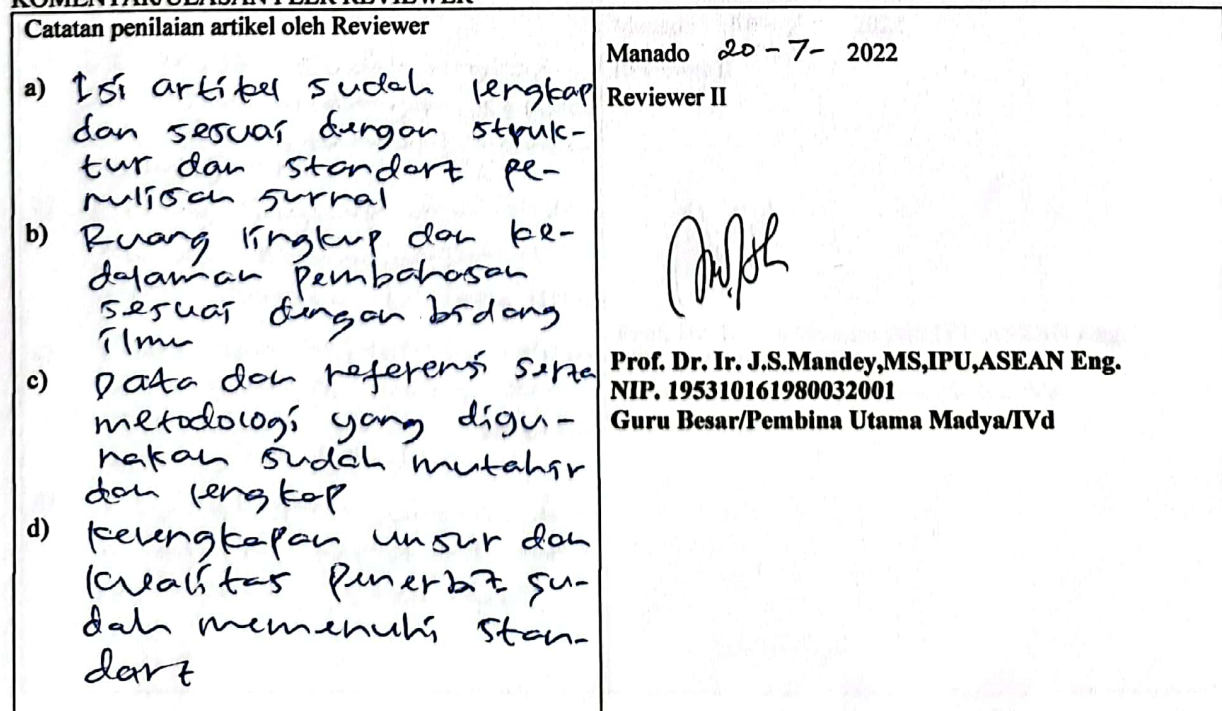 KOMENTAR/ULASAN PEER REVIEWER
Catatan penilaian artikel oleh Reviewer
a) Isi artikel sudah lengkap
dan sesuai dengan struk-
tur dan standart pe-
nulisan jurnal
b) Ruang lingkup dan ke-
dalaman pembahasan
sesuai dengan bidang
ilmu
c) Data dan referensi serta
metodologi yang digu-
nakan sudah mutahir
dan lengkap
d) Kelengkapan unsur dan
kualitas Penerbit su-
dah memenuhi stan-
dart
Manado 20-7- 2022
Reviewer II
Prof. Dr. Ir. J.S.Mandey,MS,IPU,ASEAN Eng.
NIP. 195310161980032001
Guru Besar/Pembina Utama Madya/IVd